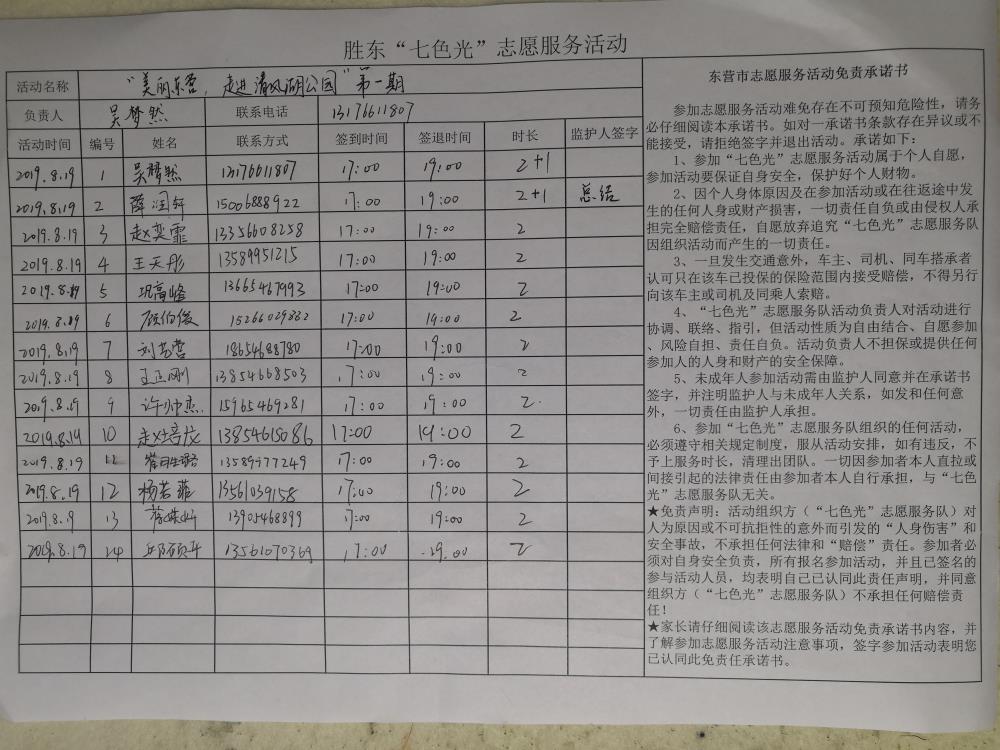 胜东“七色光”志愿服务活动
活动名称 “美丽东营，走进清风湖公园”第一期
负责人 吴梦然 联系电话 13176611807
活动时间 编号 姓名 联系方式 签到时间 签退时间 时长 监护人签字
2019.8.19 1 吴梦然 13176611807 17:00 19:00 2+1
2019.8.19 2 薛润轩 15006888922 17:00 19:00 2+1 总结
2019.8.19 3 赵奕霏 13356608258 17:00 19:00 2
2019.8.19 4 王天彤 13589951215 17:00 19:00 2
2019.8.19 5 巩高峰 13665467993 17:00 19:00 2
2019.8.19 6 15266029882 17:00 19:00 2
2019.8.19 7 18654688780 17:00 19:00 2
2019.8.19 8 王正刚 13854668503 17:00 19:00 2
2019.8.19 9 许帅杰 15965469281 17:00 19:00 2
2019.8.19 10 赵培茂 13854615086 17:00 19:00 2
2019.8.19 13589977249 17:00 19:00 2
2019.8.19 12 杨若菲 13561039158 17:00 19:00 2
2019.8.19 13 13905468899 17:00 19:00 2
2019.8.19 14 13561070369 17:00 19:00 2
东营市志愿服务活动免责承诺书
参加志愿服务活动难免存在不可预知危险性，请务
必仔细阅读本承诺书。如对一承诺书条款存在异议或不
能接受，请拒绝签字并退出活动。承诺如下：
1、参加“七色光”志愿服务活动属于个人自愿，
参加活动要保证自身安全，保护好个人财物。
2、因个人身体原因及在参加活动或在往返途中发
生的任何人身或财产损害，一切责任自负或由侵权人承
担完全赔偿责任，自愿放弃追究“七色光”志愿服务队
因组织活动而产生的一切责任。
3、一旦发生交通意外，车主、司机、同车搭承者
认可只在该车已投保的保险范围内接受赔偿，不得另行
向该车主或司机及同乘人索赔。
4、“七色光”志愿服务队活动负责人对活动进行
协调、联络、指引，但活动性质为自由结合、自愿参加
、风险自担、责任自负。活动负责人不担保或提供任何
参加人的人身和财产的安全保障。
5、未成年人参加活动需由监护人同意并在承诺书
签字，并注明监护人与未成年人关系，如发和任何意
外，一切责任由监护人承担。
6、参加“七色光”志愿服务队组织的任何活动，
必须遵守相关规定制度，服从活动安排，如有违反，不
予上服务时长，清理出团队。一切因参加者本人直拉或
间接引起的法律责任由参加者本人自行承担，与“七色
光”志愿服务队无关。
★免责声明：活动组织方（“七色光”志愿服务队）对
人为原因或不可抗拒性的意外而引发的“人身伤害”和
安全事故，不承担任何法律和“赔偿”责任。参加者必
须对自身安全负责，所有报名参加活动，并且已签名的
参与活动人员，均表明自己已认同此责任声明，并同意
组织方（“七色光”志愿服务队）不承担任何赔偿责
任！
★家长请仔细阅读该志愿服务活动免责承诺书内容，并
了解参加志愿服务活动注意事项，签字参加活动表明您
已认同此免责任承诺书。